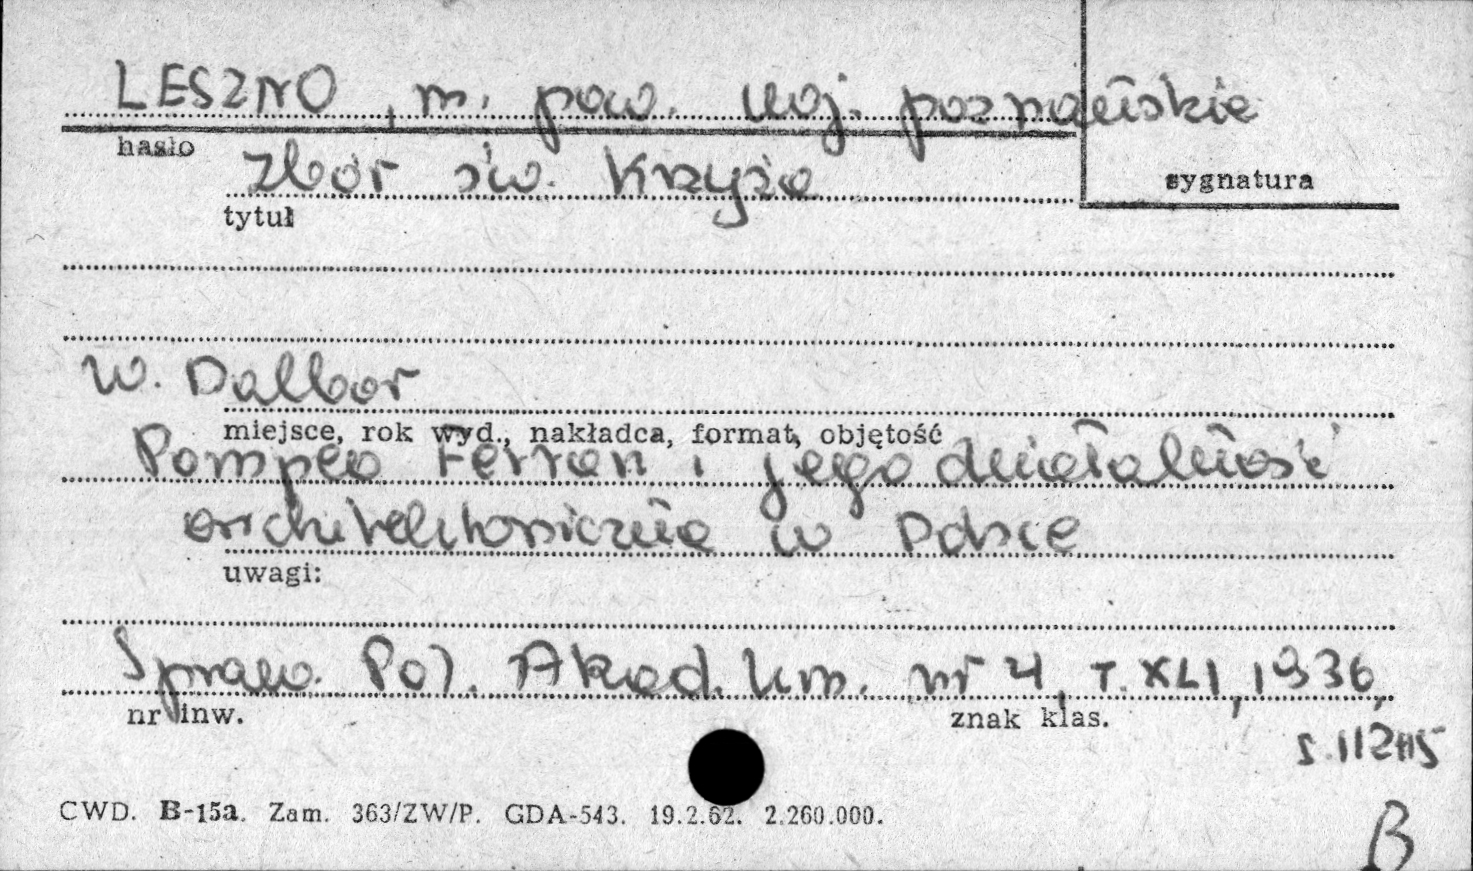 LESZNO, m. pow. woj. poznańskie
hasło
Zbór św. Krzyża
sygnatura
tytuł
W. Dalbor
miejsce, rok wyd., nakładca, format, objętość
Pompeo Ferrari i jego działalność
architektoniczna w Polsce
uwagi:
Spraw. Pol. Akad. Um. nr 4, T. XLI, 1936,
nr inw.
znak klas.
s. 112-115
CWD. B-15a. Zam. 363/ZW/P. GDA-543. 19.2.62. 2.260.000.
B